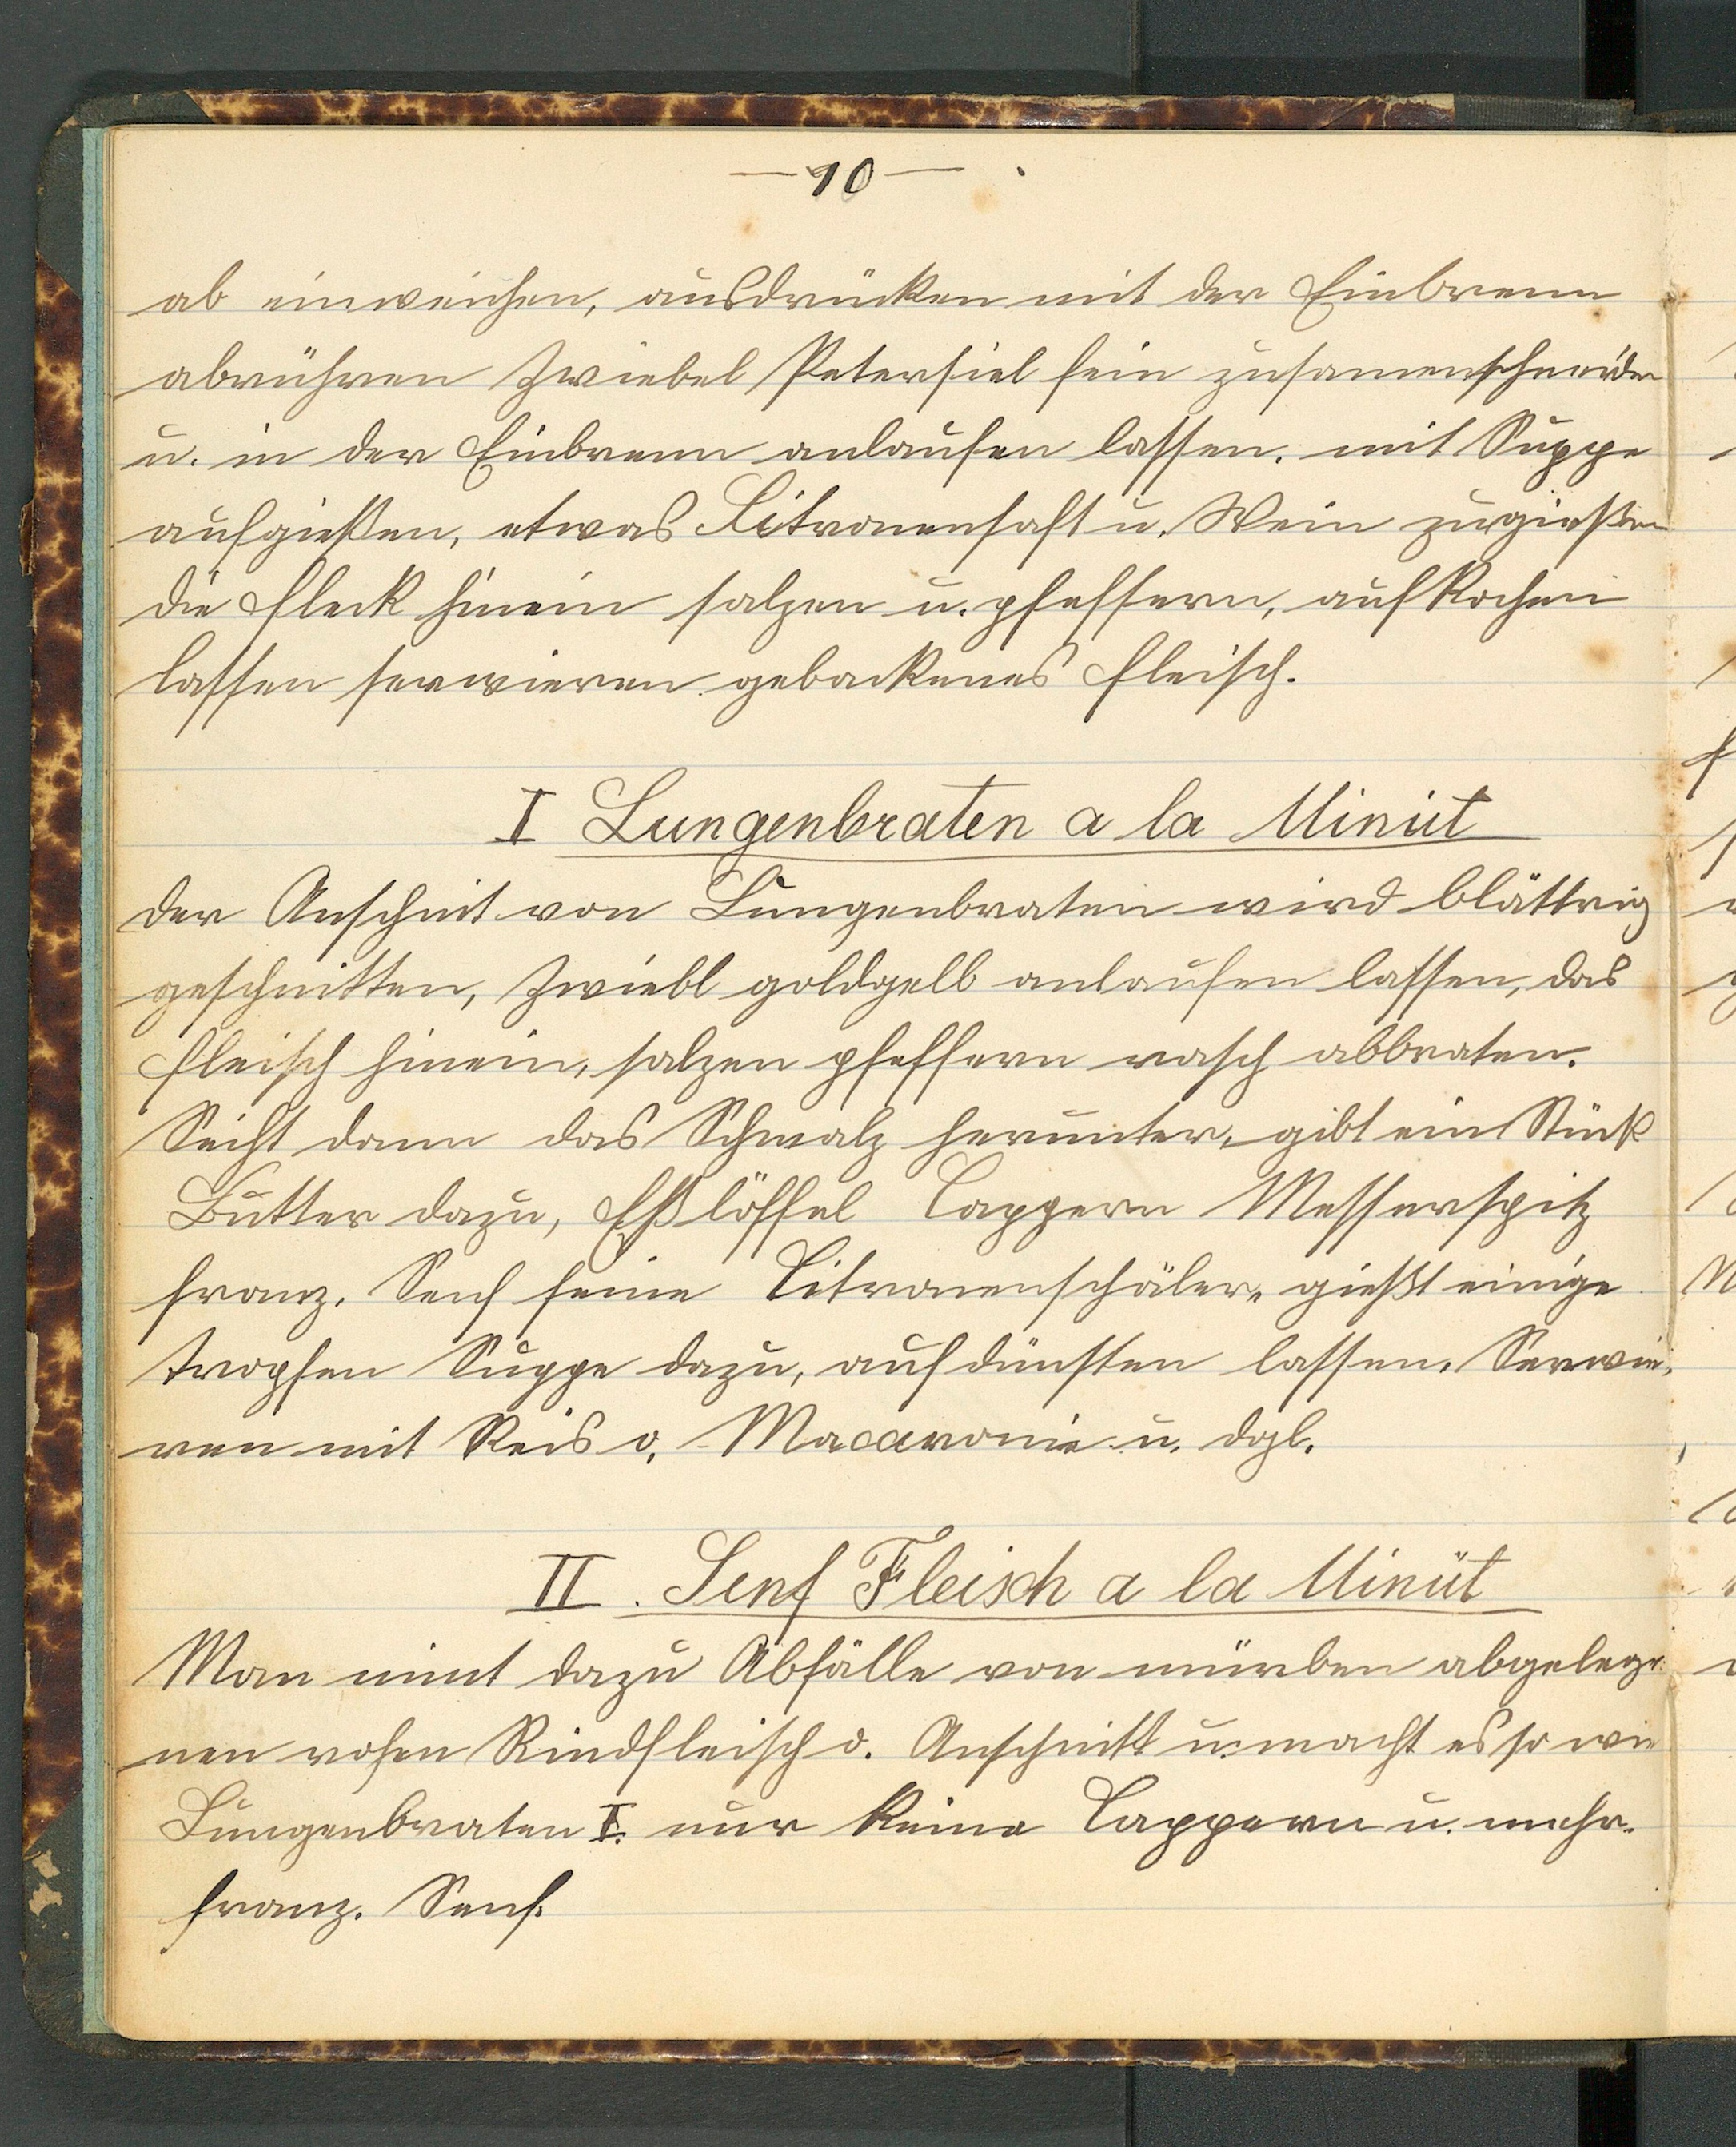 — 10 —
ab einweichen, ausdrücken mit der Einbrenn
abrühren Zwiebel Petersiel fein zusamenschneiden
u. in der Einbrenn anlaufen lassen. mit Suppe
aufgießen, etwas Citronensaft u. Wein zugießen
die Fleck hinein salzen u. pfeffern, aufkochen
lassen serwieren gebackenes Fleisch.
I Lungenbraten a la Minüt
der Anschnit von Lungenbraten wird blättrig
geschnitten, Zwiebl goldgelb anlaufen lassen, das
Fleisch hinein, salzen pfeffern rasch abbraten.
Seiht dann das Schmalz herunter, gibt ein Stük
Butter dazu, Eßlöffel Cappern Messerspitz
franz. Senf feine Citronenschäler, gießt einige
tropfen Suppe dazu, aufdünsten lassen. Serwie,
ren mit Reis o. Macaronie u. dgl.
II. Senf Fleisch a la Minüt
Man nimt dazu Abfälle von mürben abgelege
nen rohen Rindfleisch o. Anschnitt u. macht es so wie
Lungenbraten I. nur keine Cappern u. mehr
franz. Senf.